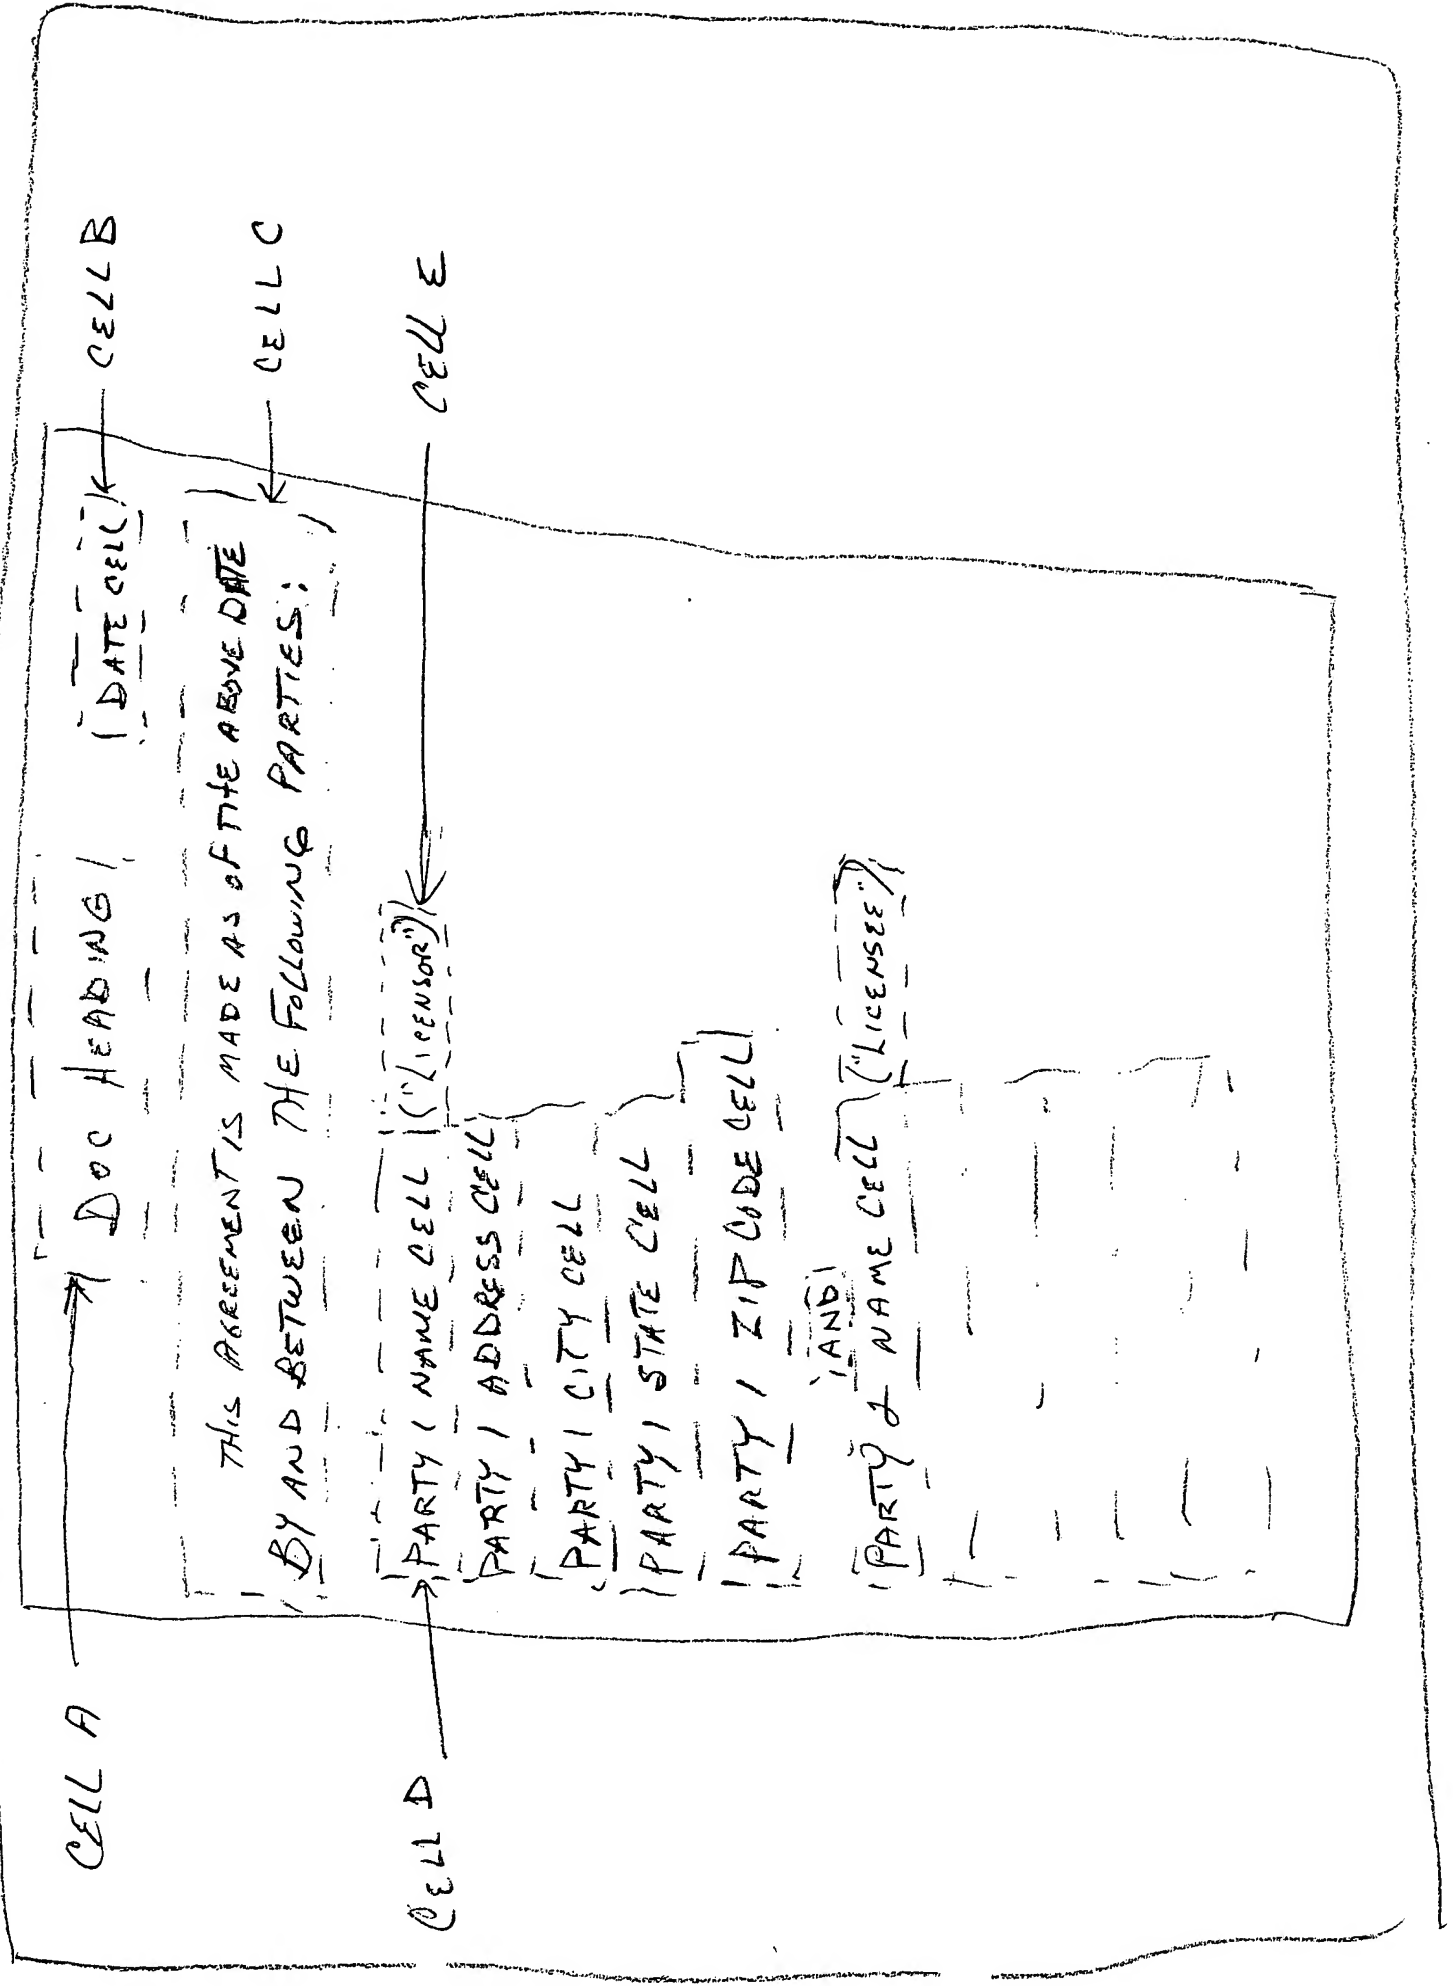 CELL A
DOC HEADING
DATE CELL
CELL B
THIS AGREEMENT IS MADE AS OF THE ABOVE DATE
BY AND BETWEEN THE FOLLOWING PARTIES:
CELL C
CELL D
PARTY 1 NAME CELL ("LICENSOR")
CELL E
PARTY 1 ADDRESS CELL
PARTY 1 CITY CELL
PARTY 1 STATE CELL
PARTY 1 ZIP CODE CELL
AND
PARTY 2 NAME CELL ("LICENSEE")